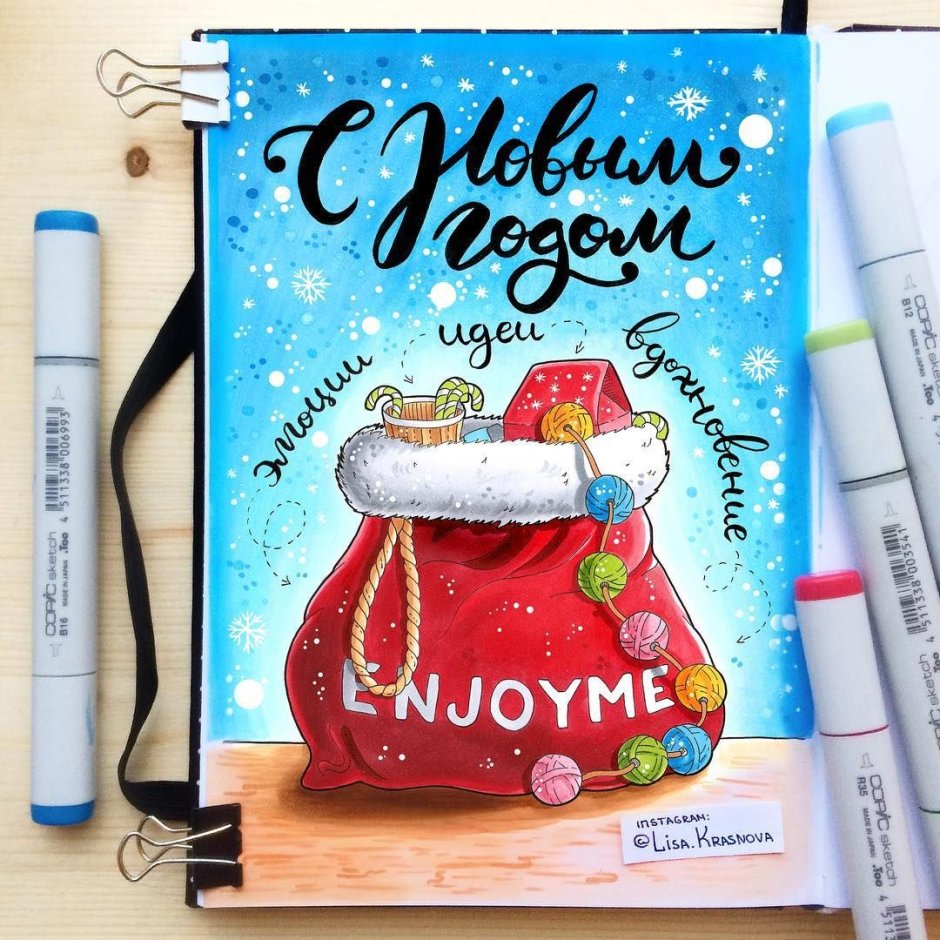 С Новым
годом
эмоции
идеи
вдохновение
ENJOYME
INSTAGRAM:
©LISA.KRASNOVA
4 511338 006993
COPIC sketch .Too
MADE IN JAPAN
B16
COPIC sketch
MADE IN JAPAN
B12
4 511338 003541
COPIC sketch .Too
MADE IN JAPAN
COPIC sketch .Too
MADE IN JAPAN
R35
4 511